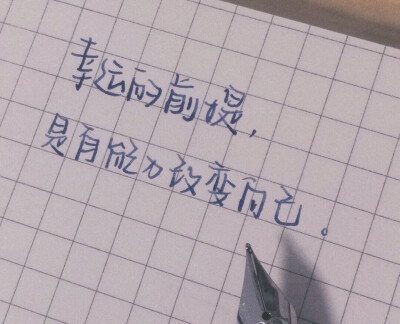 幸运的前提，
是有能力改变自己。